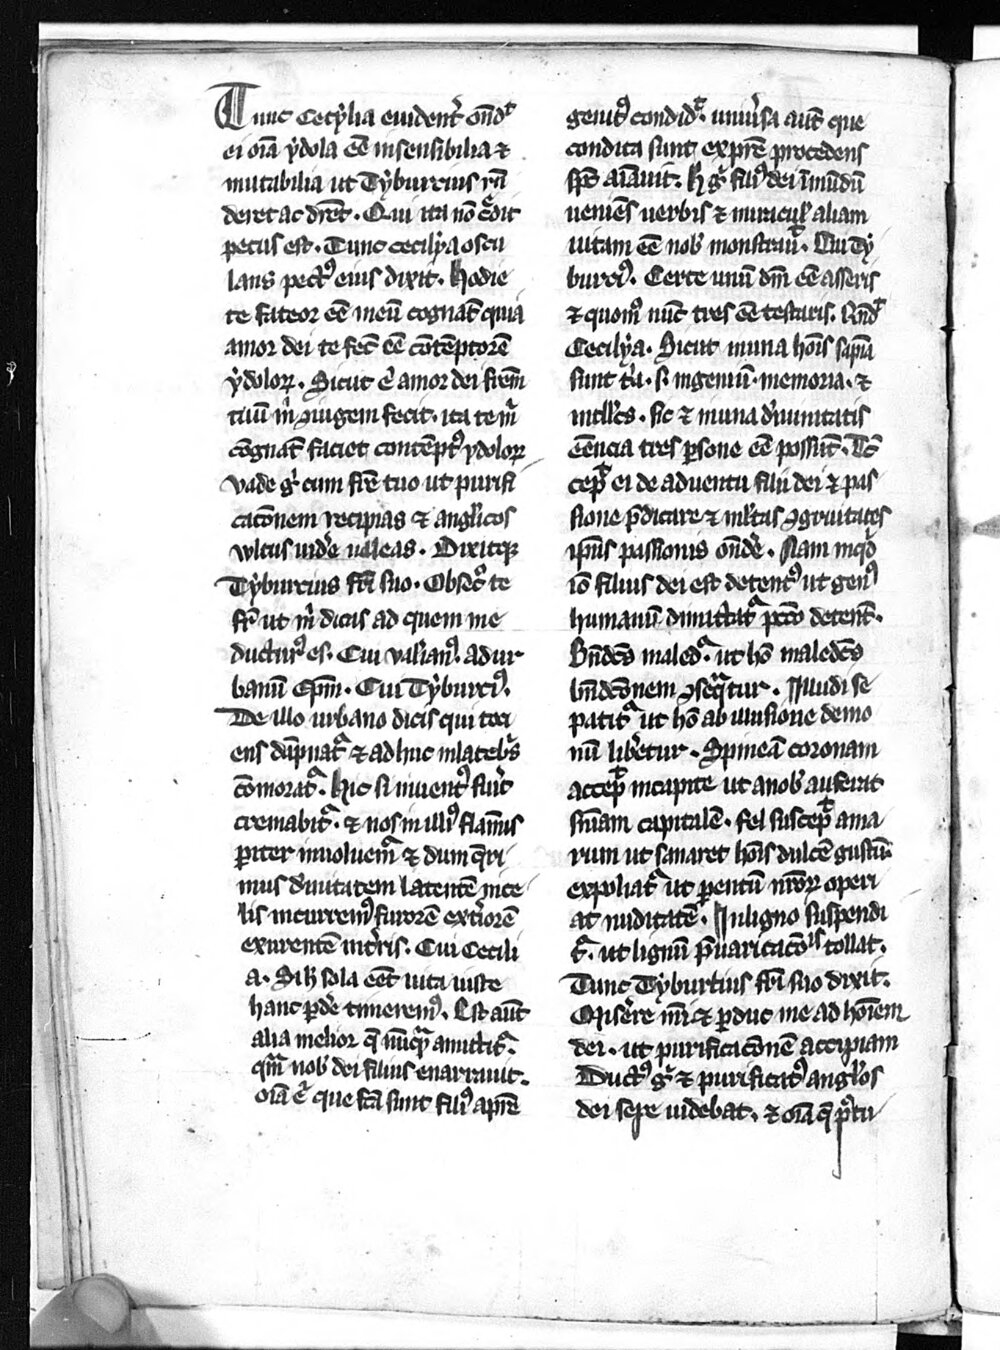 Tunc Cecylia euident᷑ oñd͛
ei oīa ydola eē insensibilia ⁊
mutabilia ut Tyburcius r̄n
deret ac dr̄et . Qui ita nō c᷑dit
pecus est . Tunc cecilya oscu
lans pectꝰ eius dixit . Hodie
te fateor eē meū cognat̄ quia
amor dei te fec̄ eē cōtēptorē
ydoloꝝ . Sicut ē amor dei fr̄em
tuū m̄ ꝯiugem fecit . ita te m̄
cōgnat̄ faciet contēptꝰ ydoloꝝ
vade g͛ cum fr̄e tuo ut purifi
cac̄onem recipias ⁊ angl̄icos
vltus uid̄e ualeas . Dixitqꝫ
Tyburcius fr̄i suo . Obsec̄ro te
fr̄ ut m̄ dicas ad quem me
ducturꝰ es . Cui valianꝰ . ad ur
banū ep̄m . Cui Tyburciꝰ .
De illo urbano dicis qui toci
ens dāpnat᷑ ⁊ adhuc in latebr̄s
cōmorat᷑ . hic si inuentꝰ fūit
cremabit᷑ . ⁊ nos in illiꝰ flam̄is
ꝑiter inuoluem᷑ ⁊ dum q̄ri
mus diuitatem latentē in ce
lis incurremꝰ furorē ext̄iorē
exurentē int̄ris . Cui Cecili
a . Si h̄ sola eēt uita iuste
hanc ꝑd̄e timeremꝰ . Est aūt
alia melior q̄ nūq̄ᵃ amittit᷑ .
qm̄ nob̄ dei filius enarrauit .
oīa e᷑ que fc̄a sunt filiꝰ a pr̄e
genitꝰ condid͛ . uniūsa aūt que
condita sunt ex pr̄e procedens
sp̄c aīauit . h g͛ filiꝰ dei ī mūdū
ueniēs uerbis ⁊ miracul̄ aliam
uitam eē nob̄ monstrau͛ . Cui Ty
burciꝰ . Certe unū dm̄ eē asseris
⁊ quom̄ nūc tres eē testaris . Rn̄d͛
Cecilya . Sicut in una hoīs sapīa
sunt t̄a . s . ingeniū . memoria . ⁊
intll̄cs . sic ⁊ in una diuinitatis
eēncia tres ꝑsone eē possūt . Tc̄
cep͛ ei de aduentu filii dei ⁊ pas
sione p̄dicare ⁊ ml̄tas ꝯgruitates
ip̄ius passionis ond̄e . Nam inq̄d
iō filius dei est detentꝰ ut genꝰ
humanū dimittat᷑ pc̄cō detent̄ .
Bn̄dcūs maled᷑ . ut hō maledcūs
bn̄dcōnem ꝯseq̄tur . Illudi se
patit᷑ ut hō ab illusione demo
nū lib̄etur . Spineā coronam
accep͛ in capite ut a nob̄ auferat
sn̄iam capitalē . fel suscep͛ ama
rum ut sanaret hoīs dulcē gustū
expoliat᷑ ut ꝑentū nr̄oꝝ operi
at nuditatē . In ligno suspendi
t᷑ . ut lignū p̄uaricac̄ōis tollat .
Tunc Tyburtius fr̄i suo dixit .
Misēre m̄i ⁊ ꝑduc me ad hoīem
dei . ut purificac̄onē accipiam
Ductꝰ g͛ ⁊ purificatꝰ angl̄os
dei sepe uidebat . ⁊ oīa q̄ pᵒtu